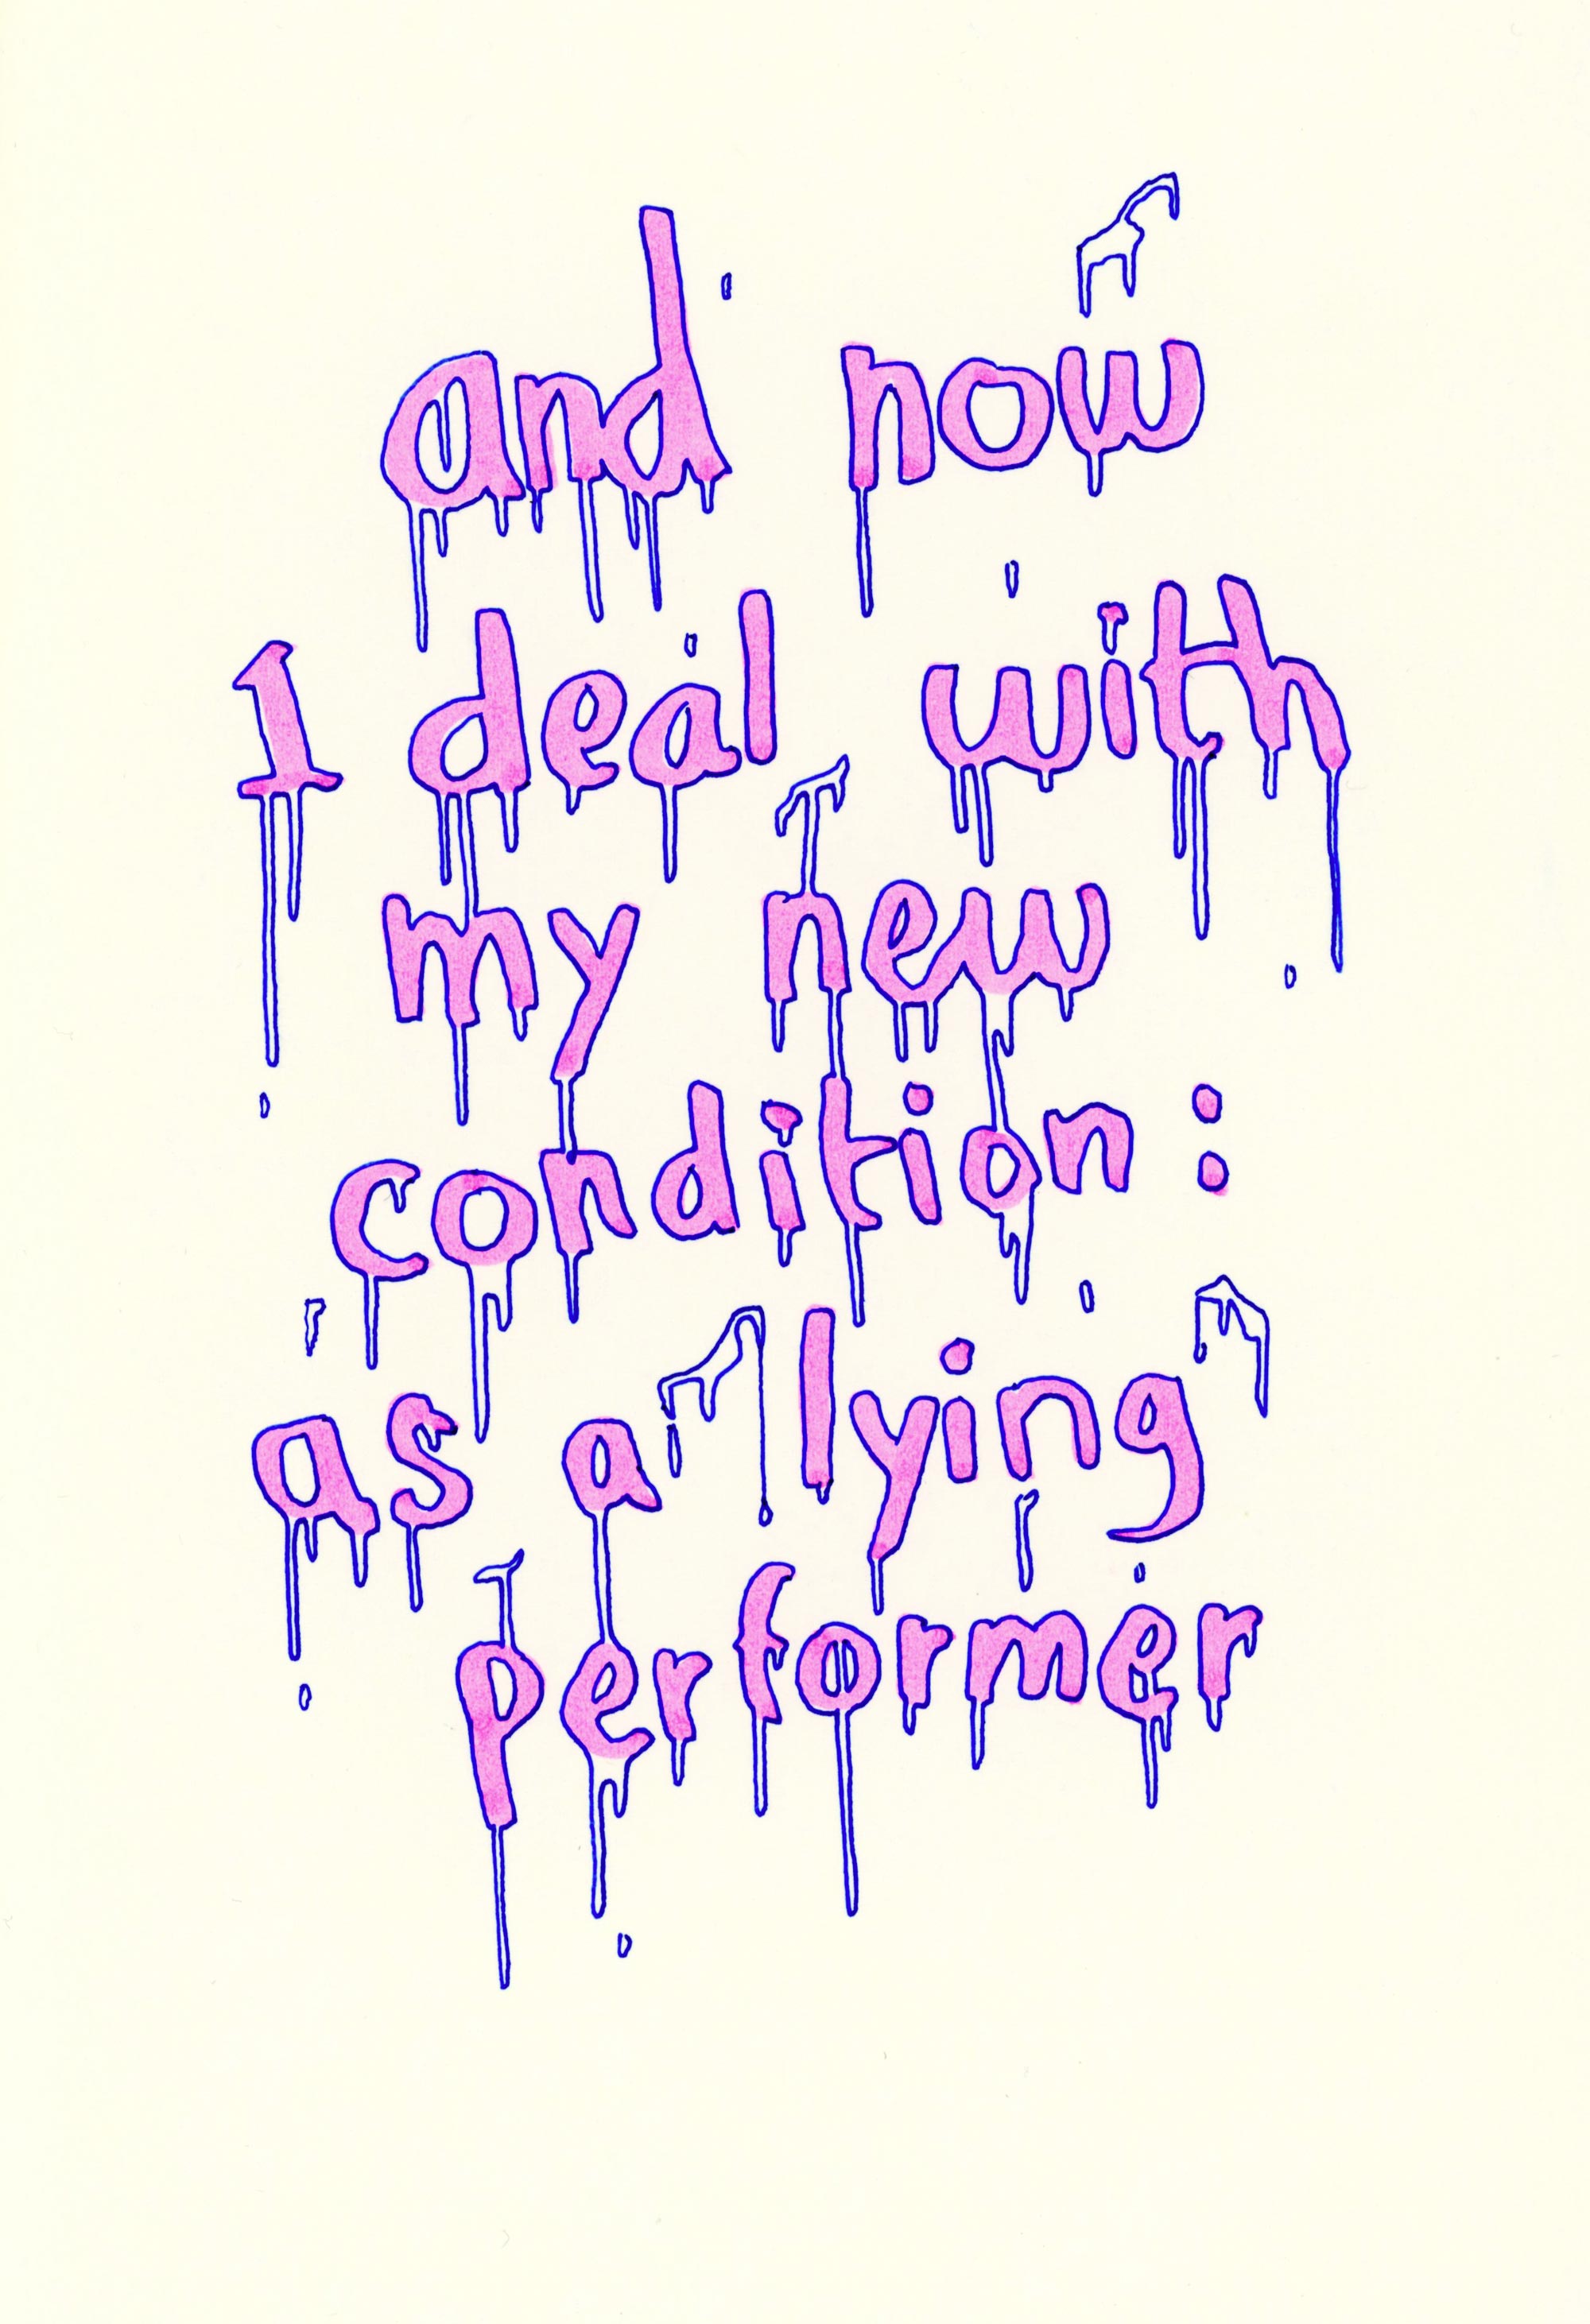 and now
I deal with
my new
condition:
as a lying
performer